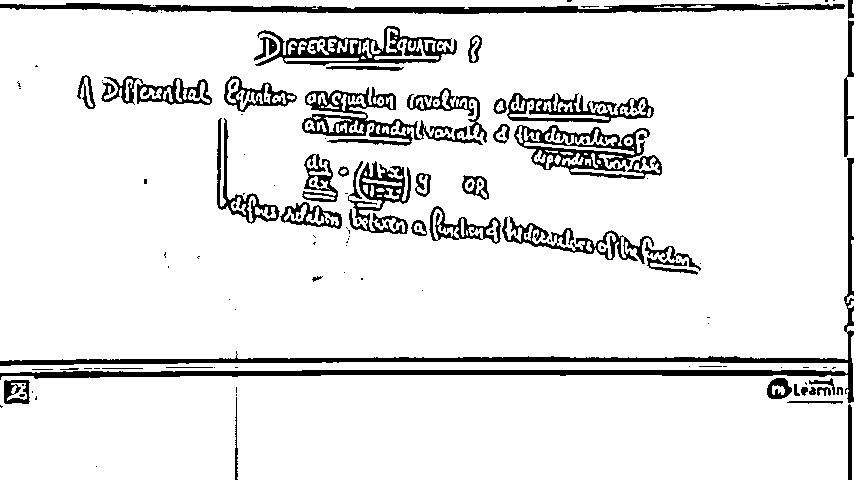 DIFFERENTIAL EQUATION ?
A Differential Equation- an equation involving a dependent variable
an independent variable & the derivative of
dependent variable
dy/dx = (1+x/1-x) y OR
defines relation between a function & the derivatives of the function
Learning